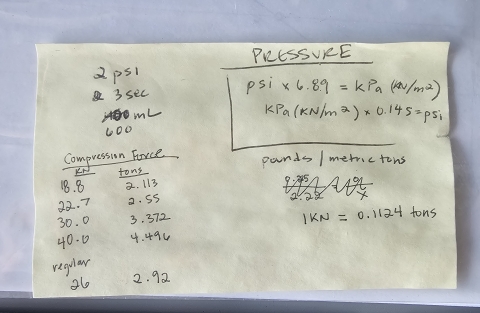 PRESSURE
2 psi
3 sec
mL
600
psi x 6.89 = kPa (kN/m2)
kPa (KN/m2) x 0.145 = psi
Compression Force
KN tons
18.8 2.113
22.7 2.55
30.0 3.372
40.0 4.496
regular
26 2.92
pounds / metric tons
1KN = 0.1124 tons